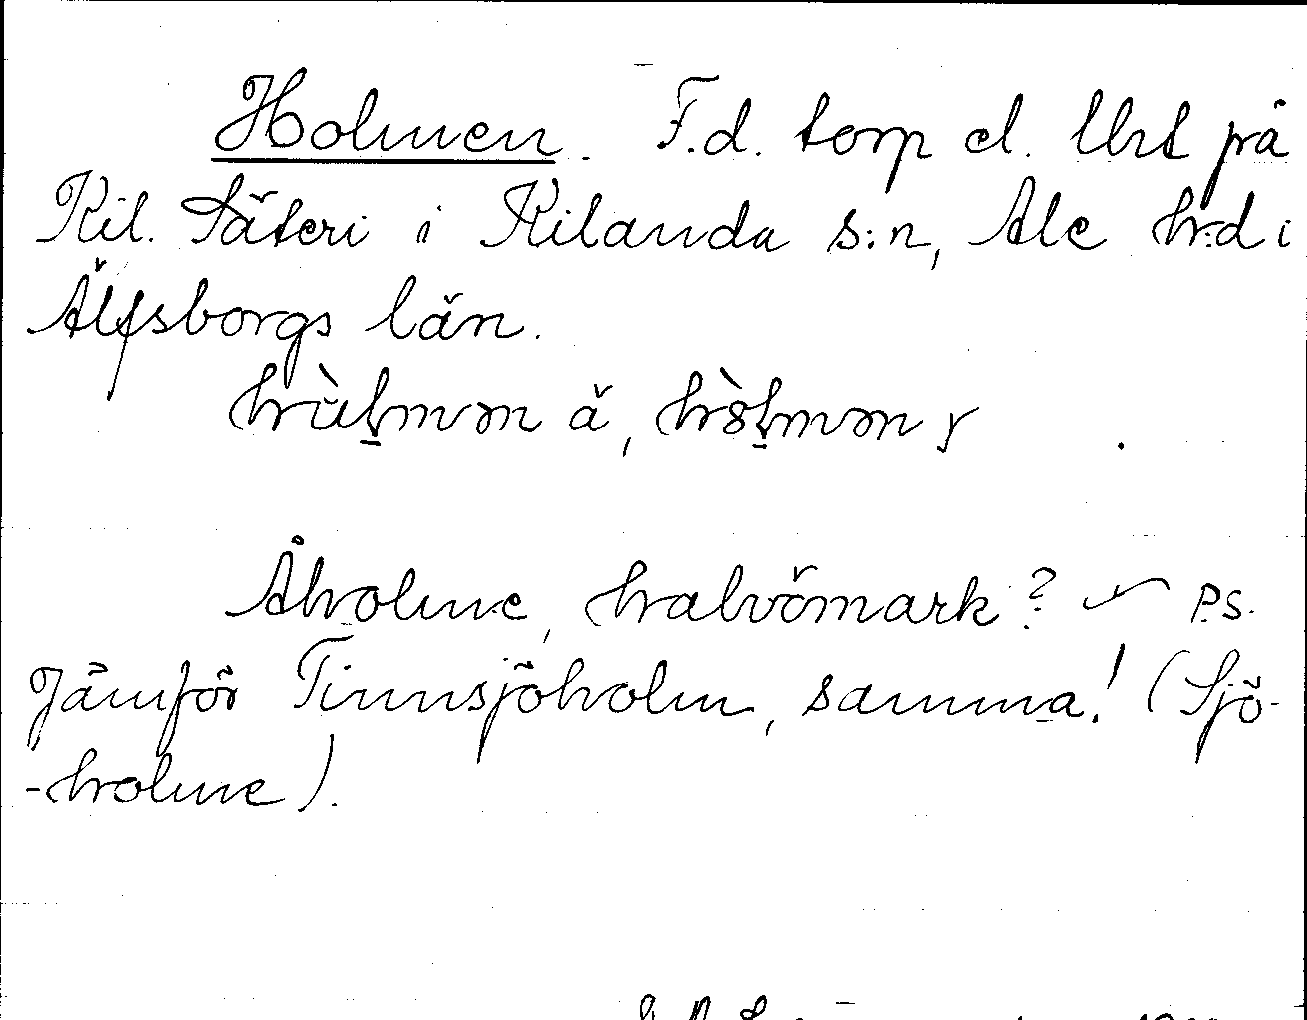 Holmen. F.d. torp el. lht på
Kil. Säteri i Kilanda s:n, Ale h:d i
Älfsborgs län.
hòlmen ä, hòlmen y
Åholme, halvömark? P.S.
Jämför Tinnsjöholm, samma! (Sjö-
-holme).